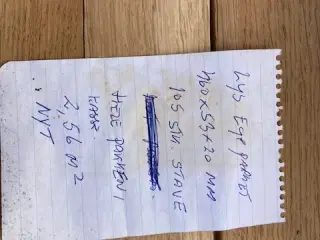 Lys Ege parket
460 x 54 x 20 MM
105 STK. STAVE
HELE PARTIET
2,56 M2
NYT